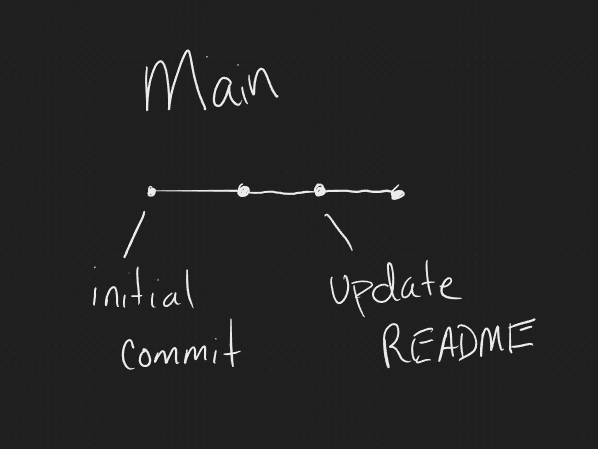 Main
initial
commit
update
README